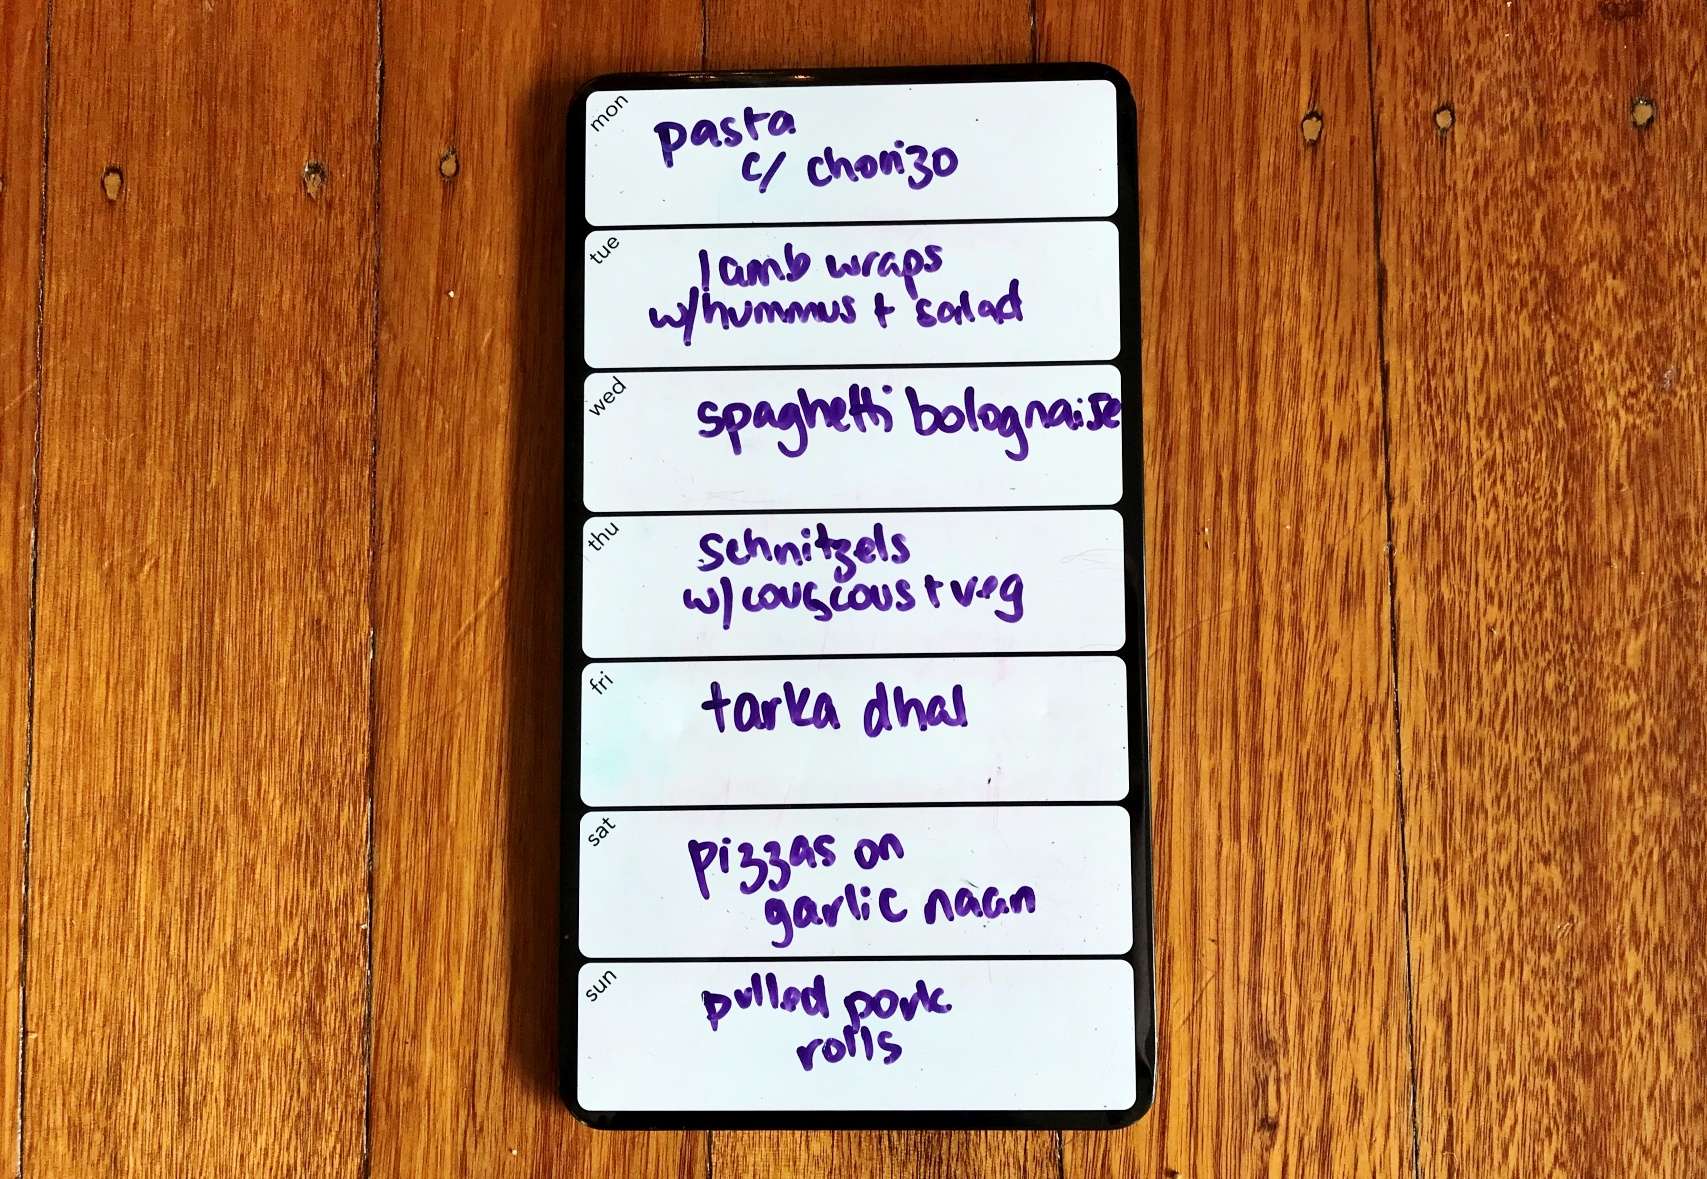 mon
pasta
c/ chorizo
tue
lamb wraps
w/hummus + salad
wed
spaghetti bolognaise
thu
schnitzels
w/couscous + veg
fri
tarka dhal
sat
pizzas on
garlic naan
sun
pulled pork
rolls